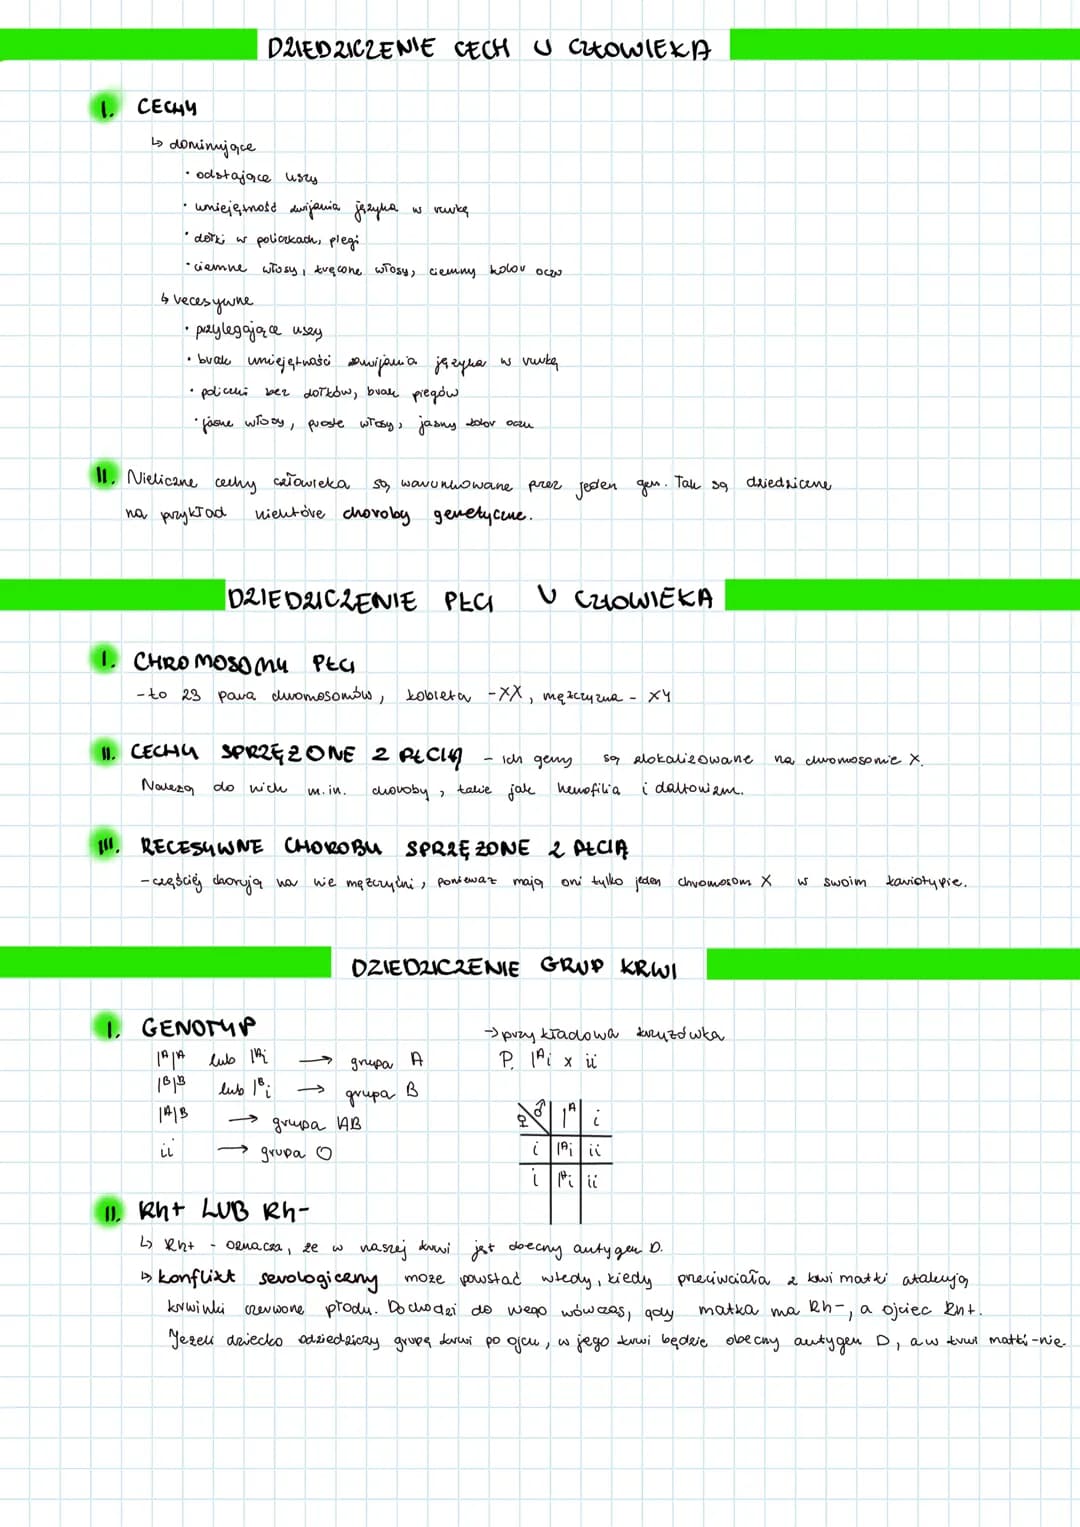 DZIEDZICZENIE CECH U CZŁOWIEKA
I. CECHY
↳ dominujące
• odstające uszy
• umiejętność zwijania języka w rurkę
• dołki w policzkach, piegi
• ciemne włosy, kręcone włosy, ciemny kolor oczu
↳ recesywne
• przylegające uszy
• brak umiejętności zwijania języka w rurkę
• policzki bez dołków, brak piegów
• jasne włosy, proste włosy, jasny kolor oczu
II. Nieliczne cechy człowieka są warunkowane przez jeden gen. Tak są dziedziczne
na przykład niektóre choroby genetyczne.
DZIEDZICZENIE PŁCI U CZŁOWIEKA
I. CHROMOSOMY PŁCI
- to 23 para chromosomów, kobieta - XX, mężczyzna - XY
II. CECHY SPRZĘŻONE Z PŁCIĄ - ich geny są zlokalizowane na chromosomie X.
Należą do nich m.in. choroby, takie jak hemofilia i daltonizm.
III. RECESYWNE CHOROBY SPRZĘŻONE Z PŁCIĄ
- częściej chorują na nie mężczyźni, ponieważ mają oni tylko jeden chromosom X w swoim kariotypie.
DZIEDZICZENIE GRUP KRWI
I. GENOTYP
IᴬIᴬ lub Iᴬi → grupa A
IᴮIᴮ lub Iᴮi → grupa B
IᴬIᴮ → grupa AB
ii → grupa O
→ przykładowa krzyżówka
P. Iᴬi x ii
♀ ♂ Iᴬ i
i Iᴬi ii
i Iᴬi ii
II. Rh+ LUB Rh-
↳ Rh+ - oznacza, że w naszej krwi jest obecny antygen D.
↳ konflikt serologiczny może powstać wtedy, kiedy przeciwciała z krwi matki atakują
krwinki czerwone płodu. Dochodzi do niego wówczas, gdy matka ma Rh-, a ojciec Rh+.
Jeżeli dziecko odziedziczy grupę krwi po ojcu, w jego krwi będzie obecny antygen D, a w krwi matki - nie